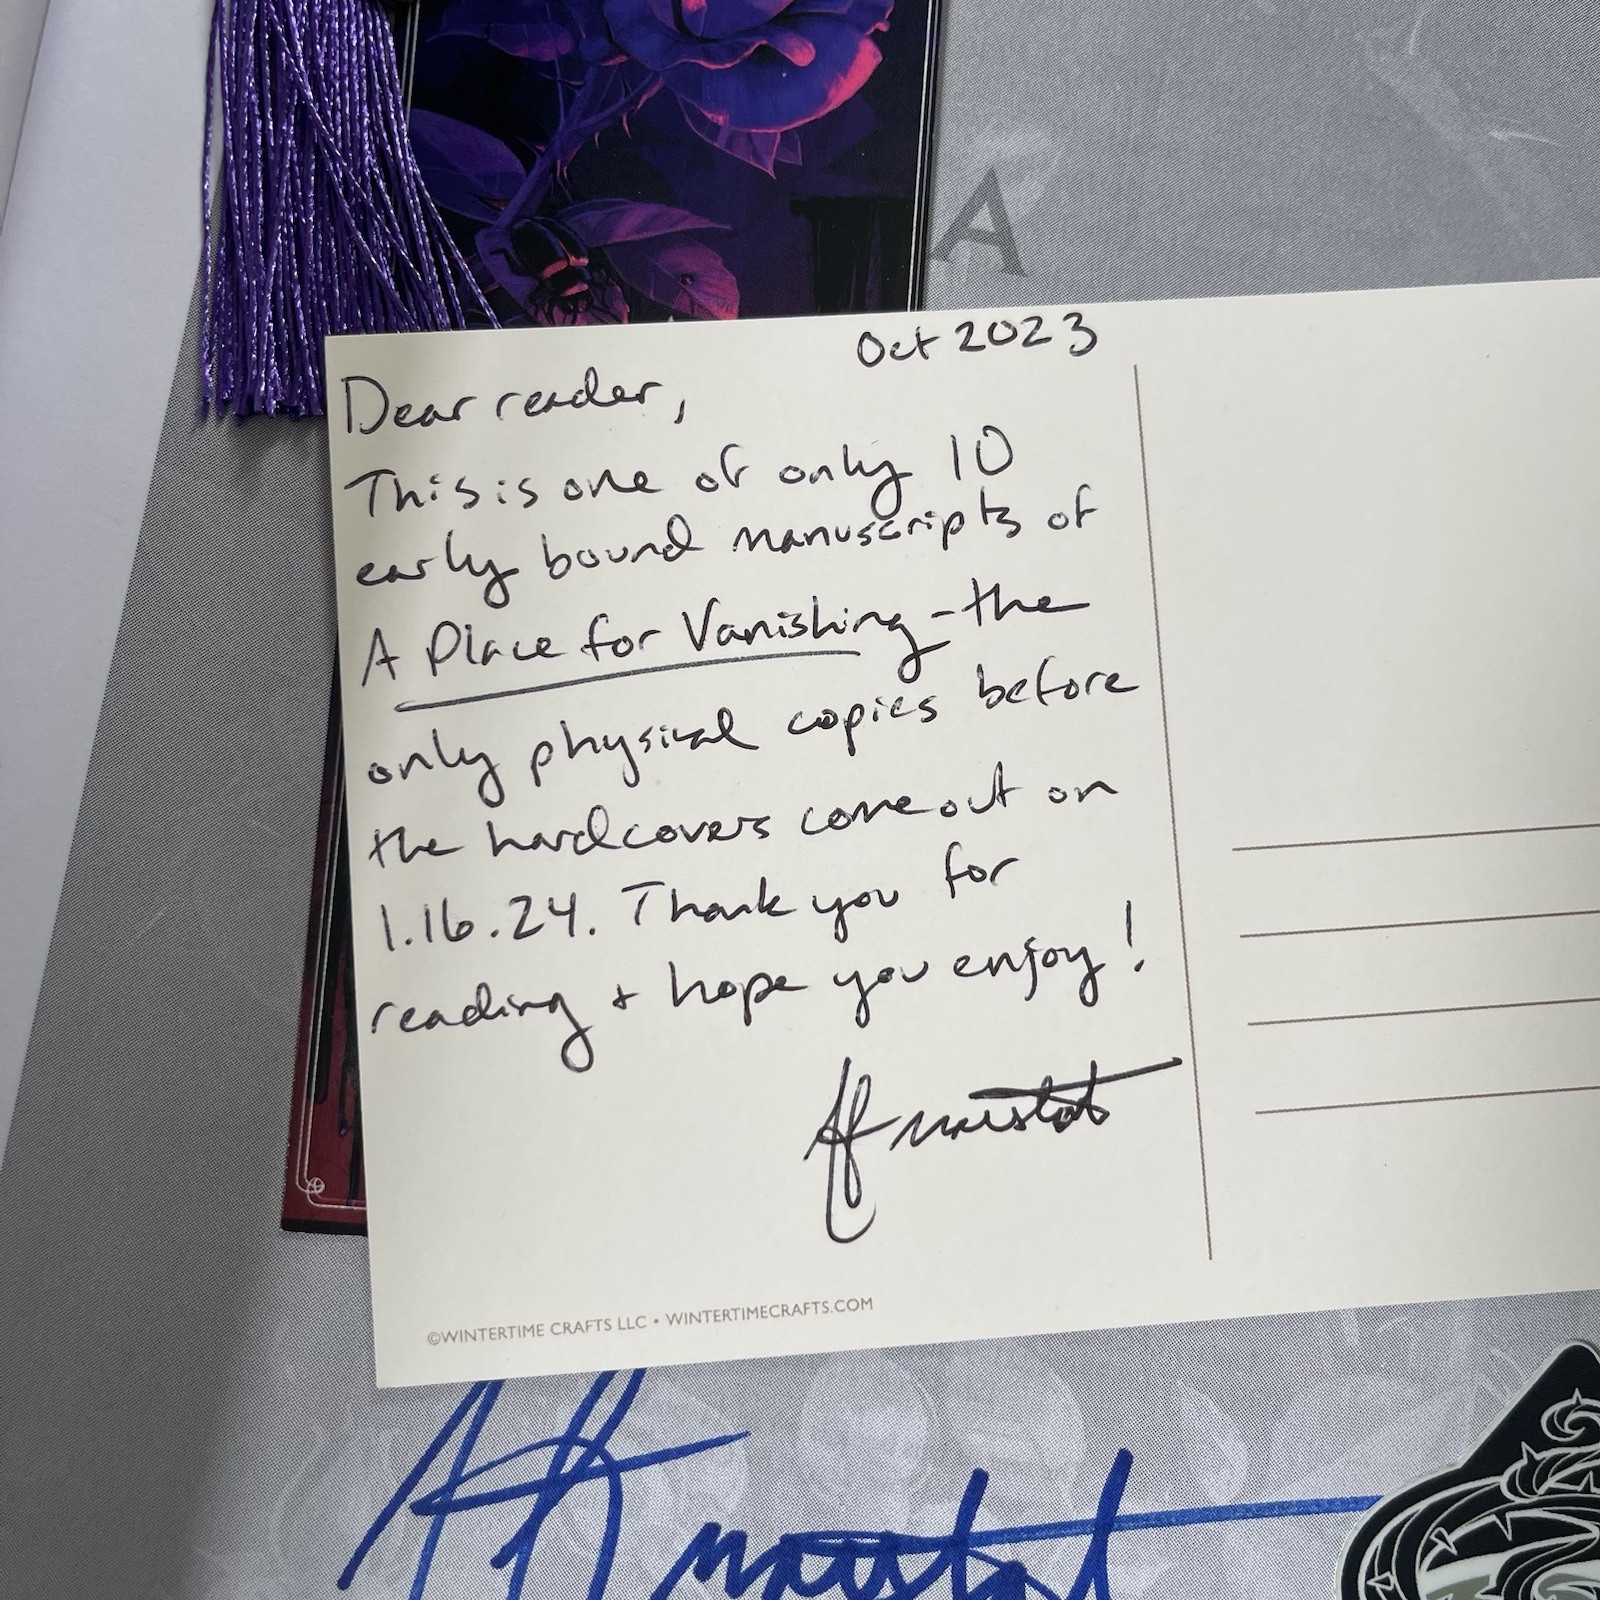 A
Oct 2023
Dear reader,
This is one of only 10
early bound manuscripts of
A Place for Vanishing - the
only physical copies before
the hardcovers come out on
1.16.24. Thank you for
reading + hope you enjoy!
©WINTERTIME CRAFTS LLC • WINTERTIMECRAFTS.COM